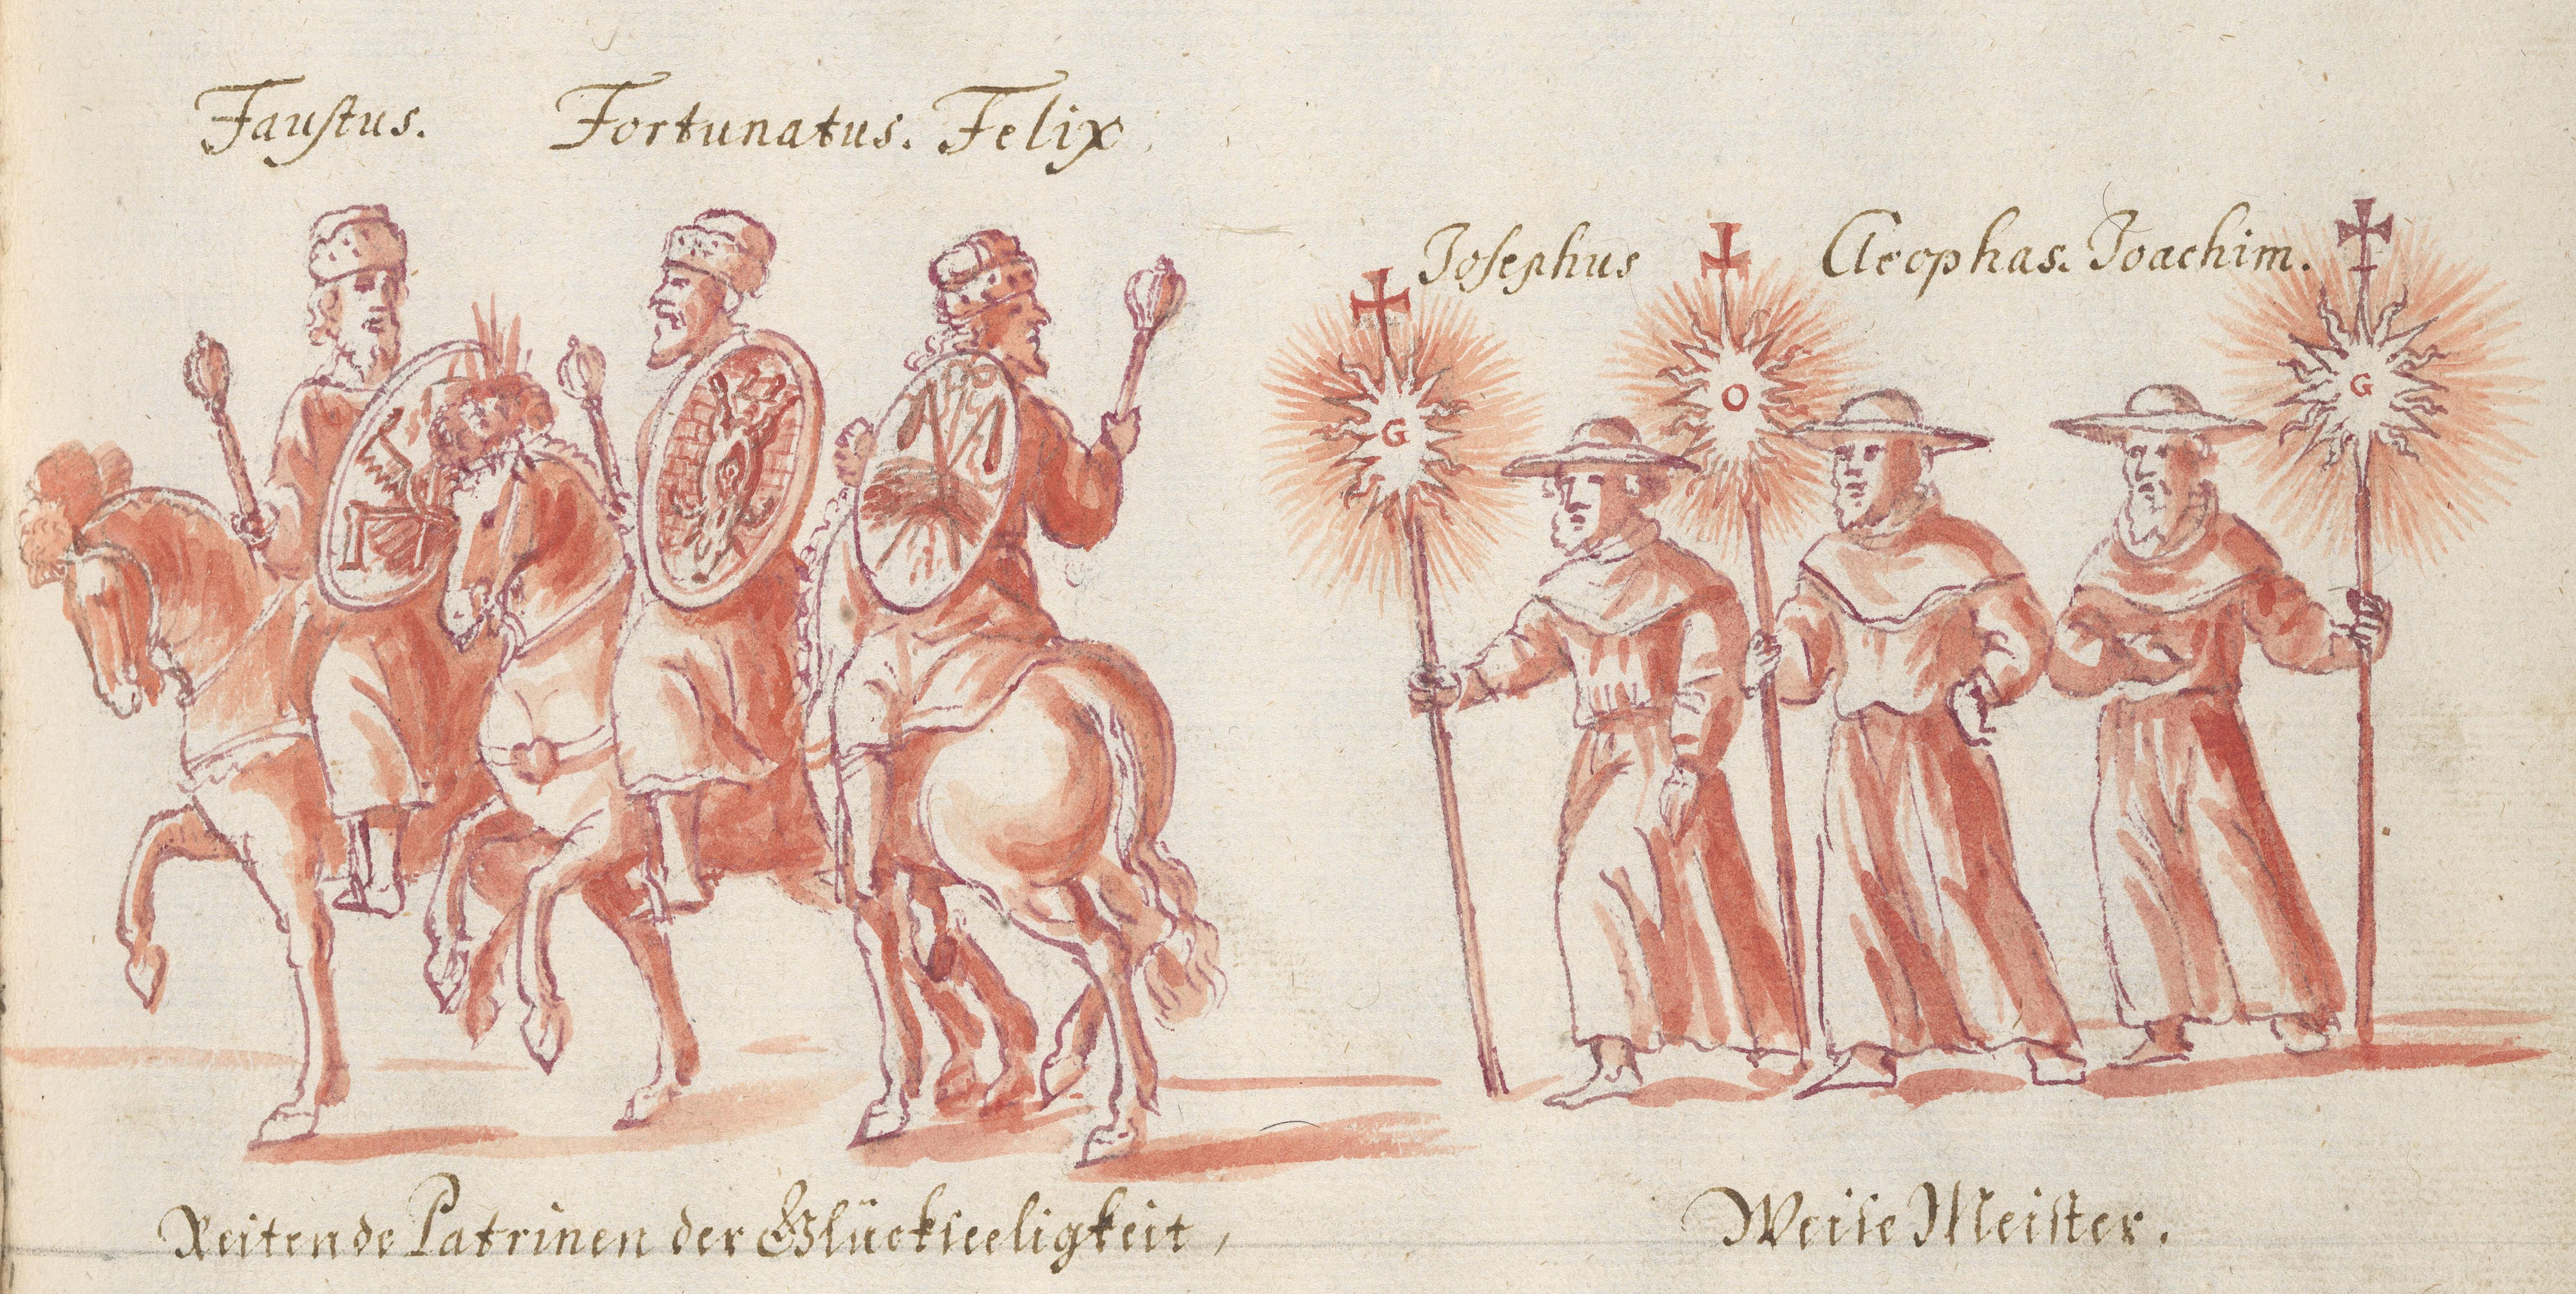 Faustus. Fortunatus. Felix.
Josephus Cleophas. Joachim.
G O G
Reitende Patrinen der Glückseeligkeit,
Weise Meister.